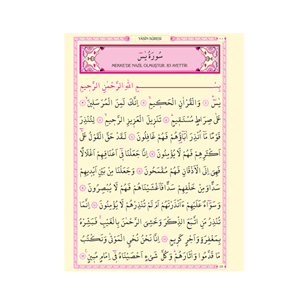 YÂSÎN SÛRESİ
سُورَةُ يٰسٓ
MEKKE'DE NAZİL OLMUŞTUR. 83 AYETTİR.
بِسْمِ اللّٰهِ الرَّحْمٰنِ الرَّحِيمِ
يٰسٓ وَالْقُرْاٰنِ الْحَكِيمِ اِنَّكَ لَمِنَ الْمُرْسَلِينَ
عَلٰى صِرَاطٍ مُسْتَقِيمٍ تَنْزِيلَ الْعَزِيزِ الرَّحِيمِ لِتُنْذِرَ
قَوْمًا مَا اُنْذِرَ اٰبَاؤُهُمْ فَهُمْ غَافِلُونَ لَقَدْ حَقَّ الْقَوْلُ عَلٰى
اَكْثَرِهِمْ فَهُمْ لَا يُؤْمِنُونَ اِنَّا جَعَلْنَا فِى اَعْنَاقِهِمْ اَغْلَالًا
فَهِىَ اِلَى الْاَذْقَانِ فَهُمْ مُقْمَحُونَ وَجَعَلْنَا مِنْ بَيْنِ اَيْدِيهِمْ
سَدًّا وَمِنْ خَلْفِهِمْ سَدًّا فَاَغْشَيْنَاهُمْ فَهُمْ لَا يُبْصِرُونَ
وَسَوَاءٌ عَلَيْهِمْ ءَاَنْذَرْتَهُمْ اَمْ لَمْ تُنْذِرْهُمْ لَا يُؤْمِنُونَ اِنَّمَا
تُنْذِرُ مَنِ اتَّبَعَ الذِّكْرَ وَخَشِىَ الرَّحْمٰنَ بِالْغَيْبِ فَبَشِّرْهُ
بِمَغْفِرَةٍ وَاَجْرٍ كَرِيمٍ اِنَّا نَحْنُ نُحْيِ الْمَوْتٰى وَنَكْتُبُ
مَا قَدَّمُوا وَاٰثَارَهُمْ وَكُلَّ شَىْءٍ اَحْصَيْنَاهُ فِى اِمَامٍ مُبِينٍ